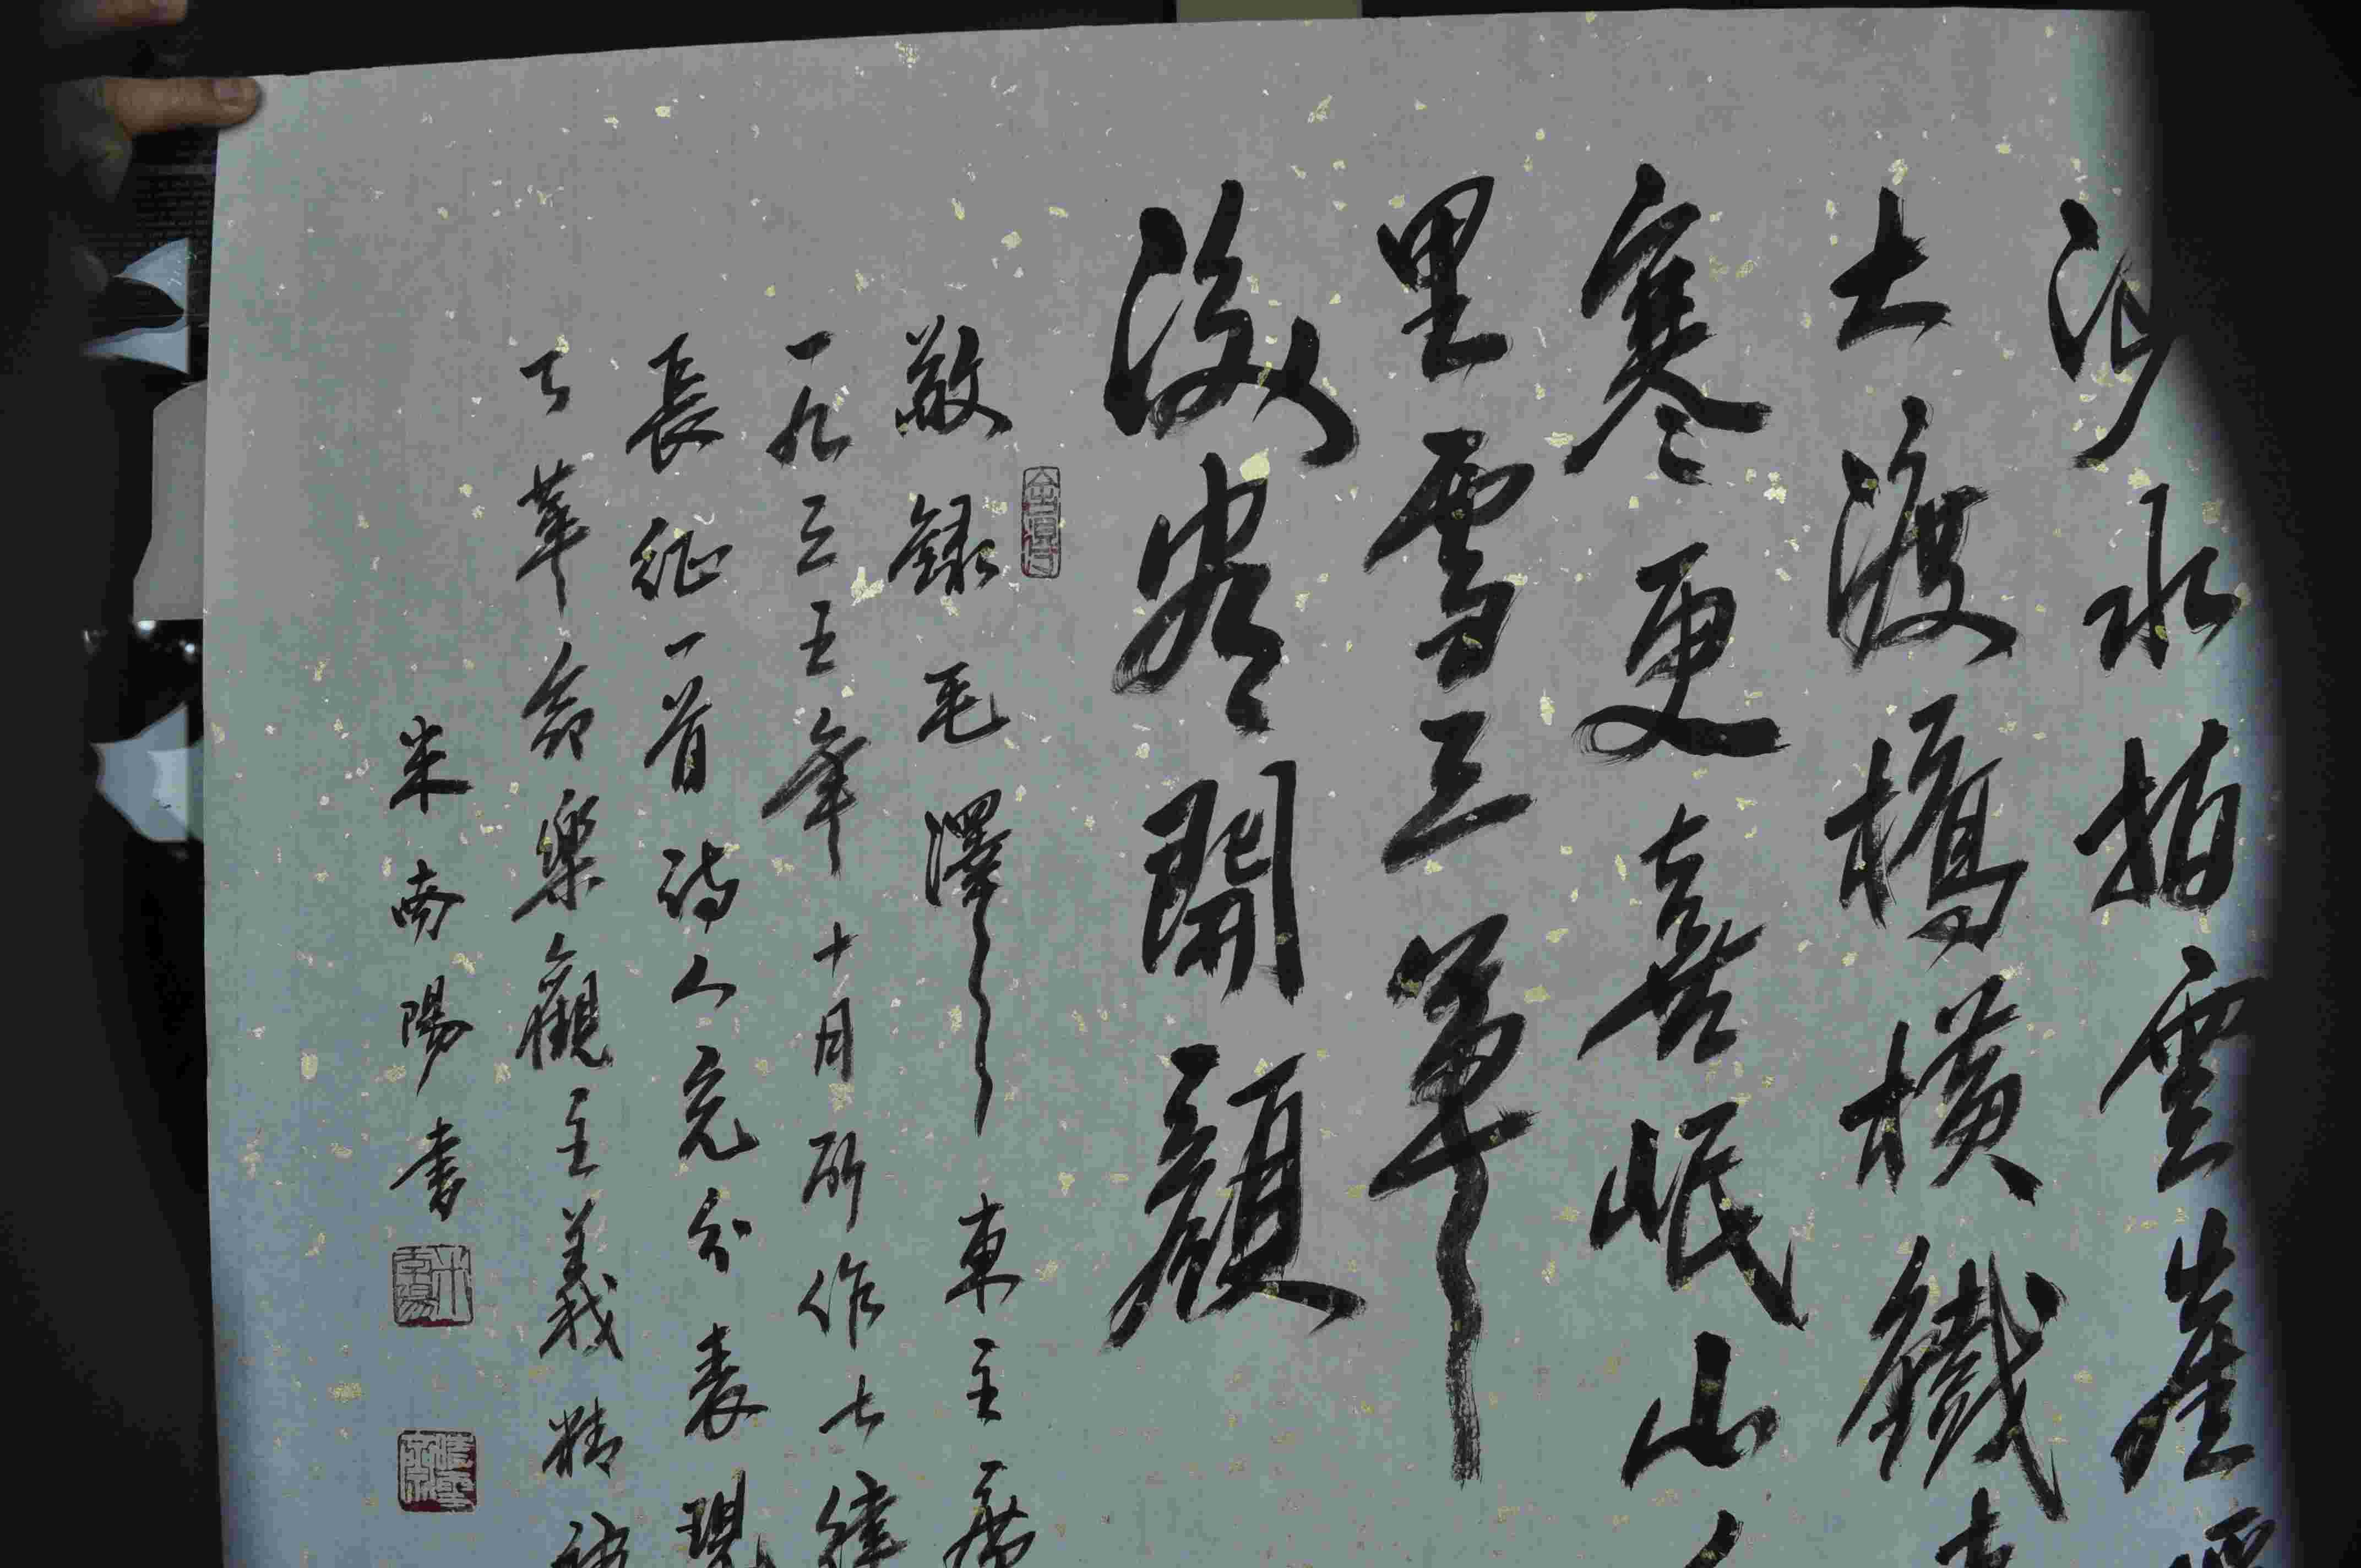 沙水拍雲崖
大渡橋橫鐵
寒更喜岷山
里雪三軍
後盡開顏
敬錄毛澤東主席
一九三五年十月所作七律
長征一首詩人充分表現
了革命樂觀主義精神
米南陽書
米南陽